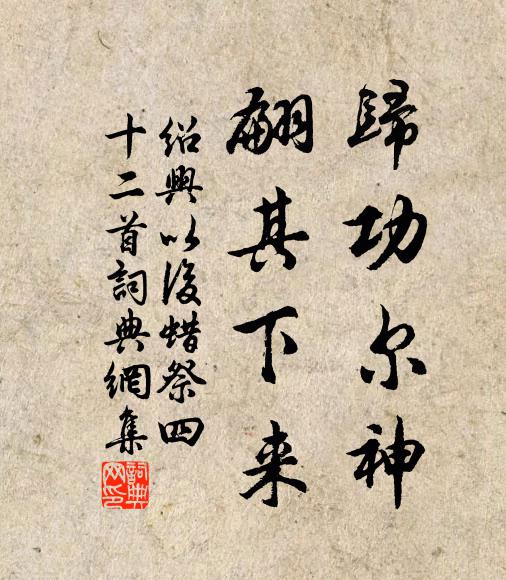 歸功尔神
翩其下来
紹興以後蜡祭四
十二首詞典網集
詞典
网印